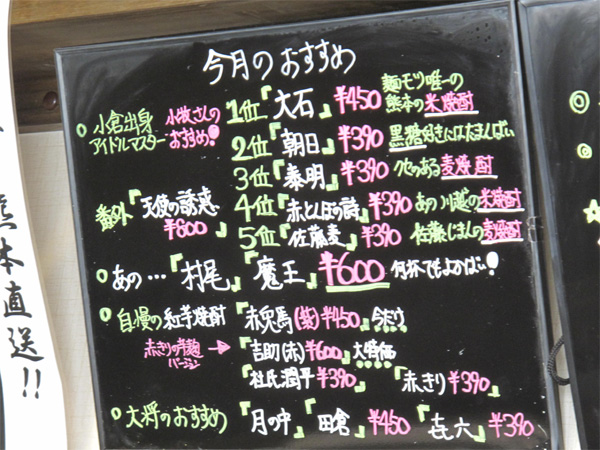 今月のおすすめ
小倉出身
アイドルマスター
小牧さんの
おすすめ!
1位『大石』¥450 麹モヅ唯一の
熊本の米焼酎
2位『朝日』¥390 黒糖好きにはたまんばい
3位『泰明』¥390 クセのある麦焼酎
4位『赤とんぼの詩』¥390 あの川越の米焼酎
5位『佐藤麦』¥390 佐藤じまんの麦焼酎
番外『天使の誘惑』
¥800
あの…『村尾』『魔王』¥600 何杯でもよかばい!
自慢の紅芋焼酎『赤兎馬(紫)』¥450 今だけ
『吉助(赤)』¥600 大特価
『杜氏潤平』¥390 『赤きり』¥390
大将のおすすめ『月の中』『田倉』¥450 『㐂六』¥390
熊本直送!!